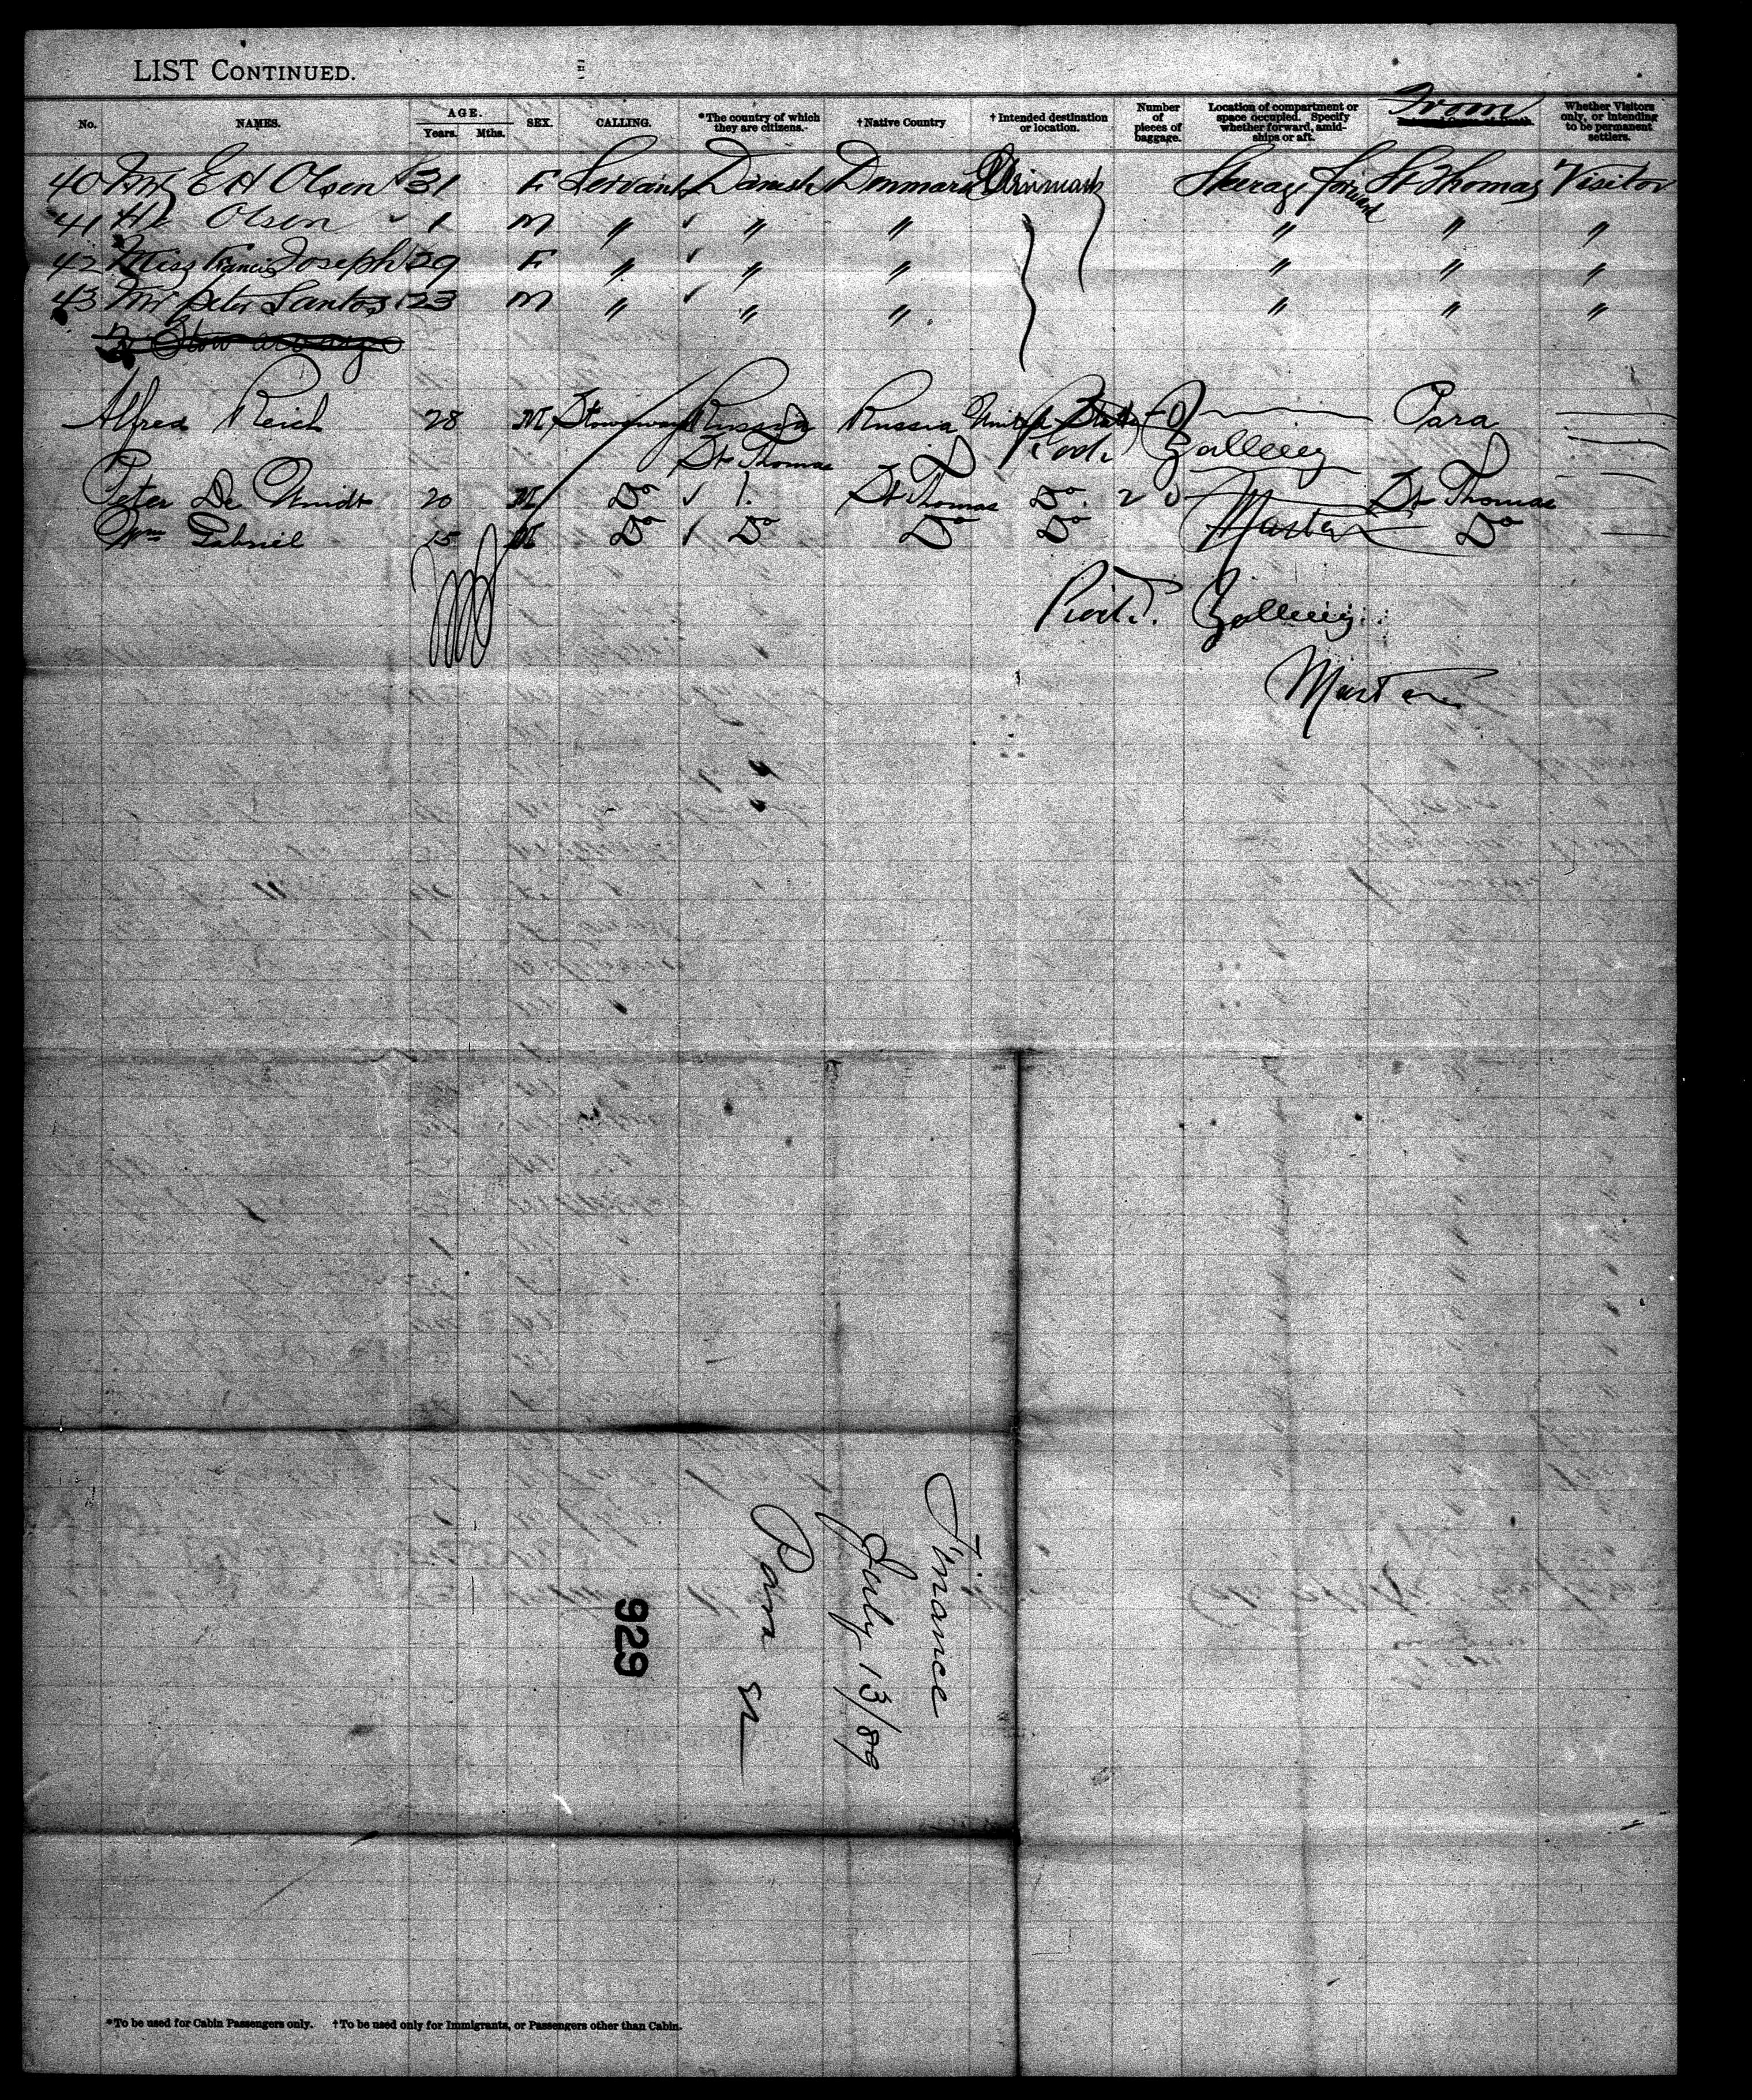 LIST CONTINUED.
No. NAMES. AGE. Years. Mths. SEX. CALLING. *The country of which they are citizens. †Native Country †Intended destination or location. Number of pieces of baggage. Location of compartment or space occupied. Specify whether forward, amidships or aft. From Whether Visitors only, or intending to be permanent settlers.
40 E H Olsen 31 F Servant Danish Denmark Denmark Steerage forward St Thomas Visitor
41 Olsen 1 M " " " " " "
42 Miss Francis Joseph 29 F " " " " " "
43 Mr Peter Santos 23 M " " " " " "
Alfred Reich 28 M Stowaway Russia Russia United States Para
St Thomas
Peter De 20 M Do St Thomas Do St Thomas
Wm Gabriel 15 M Do Do Do Do Master Do
Master
Finance
July 13/89
Para
929
*To be used for Cabin Passengers only. †To be used only for Immigrants, or Passengers other than Cabin.